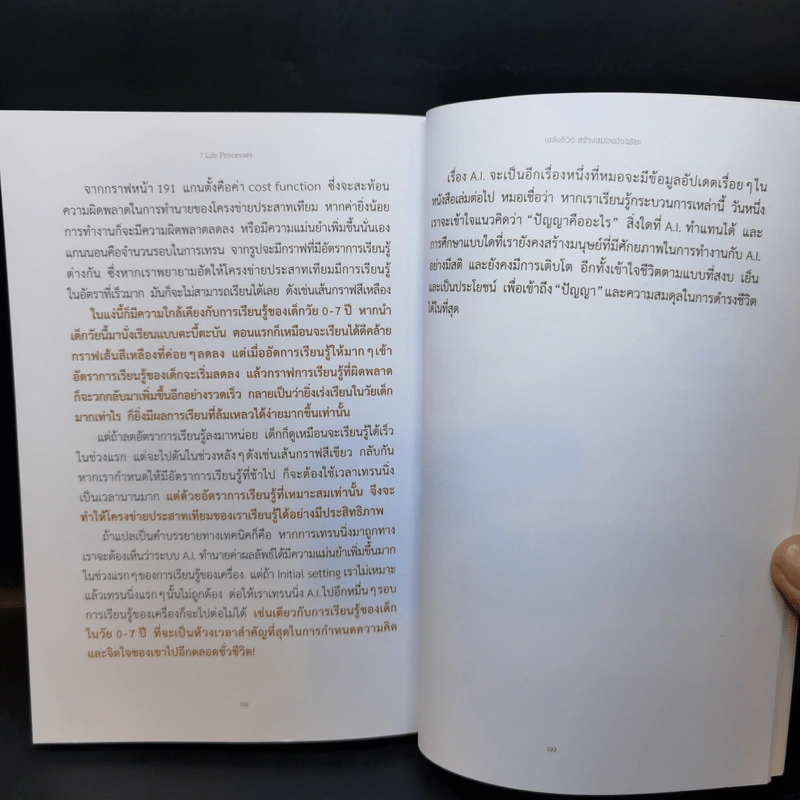 7 Life Processes
จากกราฟหน้า 191 แกนตั้งคือค่า cost function ซึ่งจะสะท้อน
ความผิดพลาดในการทำนายของโครงข่ายประสาทเทียม หากค่ายิ่งน้อย
การทำงานก็จะมีความผิดพลาดลดลง หรือมีความแม่นยำเพิ่มขึ้นนั่นเอง
แกนนอนคือจำนวนรอบในการเทรน จากรูปจะมีกราฟที่มีอัตราการเรียนรู้
ต่างกัน ซึ่งหากเราพยายามอัดให้โครงข่ายประสาทเทียมมีการเรียนรู้
ในอัตราที่เร็วมาก มันก็จะไม่สามารถเรียนได้เลย ดังเช่นเส้นกราฟสีเหลือง
ในแง่นี้ก็มีความใกล้เคียงกับการเรียนรู้ของเด็กวัย 0-7 ปี หากนำ
เด็กวัยนี้มานั่งเรียนแบบตะบี้ตะบัน ตอนแรกก็เหมือนจะเรียนได้ดีคล้าย
กราฟเส้นสีเหลืองที่ค่อยๆลดลง แต่เมื่ออัดการเรียนรู้ให้มากๆเข้า
อัตราการเรียนรู้ของเด็กจะเริ่มลดลง แล้วกราฟการเรียนรู้ที่ผิดพลาด
ก็จะวกกลับมาเพิ่มขึ้นอีกอย่างรวดเร็ว กลายเป็นว่ายิ่งเร่งเรียนในวัยเด็ก
มากเท่าไร ก็ยิ่งมีผลการเรียนที่ล้มเหลวได้ง่ายมากขึ้นเท่านั้น
แต่ถ้าลดอัตราการเรียนรู้ลงมาหน่อย เด็กก็ดูเหมือนจะเรียนรู้ได้เร็ว
ในช่วงแรก แต่จะไปตันในช่วงหลังๆดังเช่นเส้นกราฟสีเขียว กลับกัน
หากเรากำหนดให้มีอัตราการเรียนรู้ที่ช้าไป ก็จะต้องใช้เวลาเทรนนิ่ง
เป็นเวลานานมาก แต่ด้วยอัตราการเรียนรู้ที่เหมาะสมเท่านั้น จึงจะ
ทำให้โครงข่ายประสาทเทียมของเราเรียนรู้ได้อย่างมีประสิทธิภาพ
ถ้าแปลเป็นคำบรรยายทางเทคนิคก็คือ หากการเทรนนิ่งมาถูกทาง
เราจะต้องเห็นว่าระบบ A.I. ทำนายค่าผลลัพธ์ได้มีความแม่นยำเพิ่มขึ้นมาก
ในช่วงแรกๆของการเรียนรู้ของเครื่อง แต่ถ้า Initial setting เราไม่เหมาะ
แล้วเทรนนิ่งแรกๆนั้นไม่ถูกต้อง ต่อให้เราเทรนนิ่ง A.I.ไปอีกหมื่นๆรอบ
การเรียนรู้ของเครื่องก็จะไปต่อไม่ได้ เช่นเดียวกับการเรียนรู้ของเด็ก
ในวัย 0-7 ปี ที่จะเป็นห้วงเวลาสำคัญที่สุดในการกำหนดความคิด
และจิตใจของเขาไปอีกตลอดชั่วชีวิต!
192
พลังชีวิต สร้างสมองอัจฉริยะ
เรื่อง A.I. จะเป็นอีกเรื่องหนึ่งที่หมอจะมีข้อมูลอัปเดตเรื่อยๆใน
หนังสือเล่มต่อไป หมอเชื่อว่า หากเราเรียนรู้กระบวนการเหล่านี้ วันหนึ่ง
เราจะเข้าใจแนวคิดว่า “ปัญญาคืออะไร” สิ่งใดที่ A.I. ทำแทนได้ และ
การศึกษาแบบใดที่เรายังคงสร้างมนุษย์ที่มีศักยภาพในการทำงานกับ A.I.
อย่างมีสติ และยังคงมีการเติบโต อีกทั้งเข้าใจชีวิตตามแบบที่สงบ เย็น
และเป็นประโยชน์ เพื่อเข้าถึง “ปัญญา”และความสมดุลในการดำรงชีวิต
ได้ในที่สุด
193